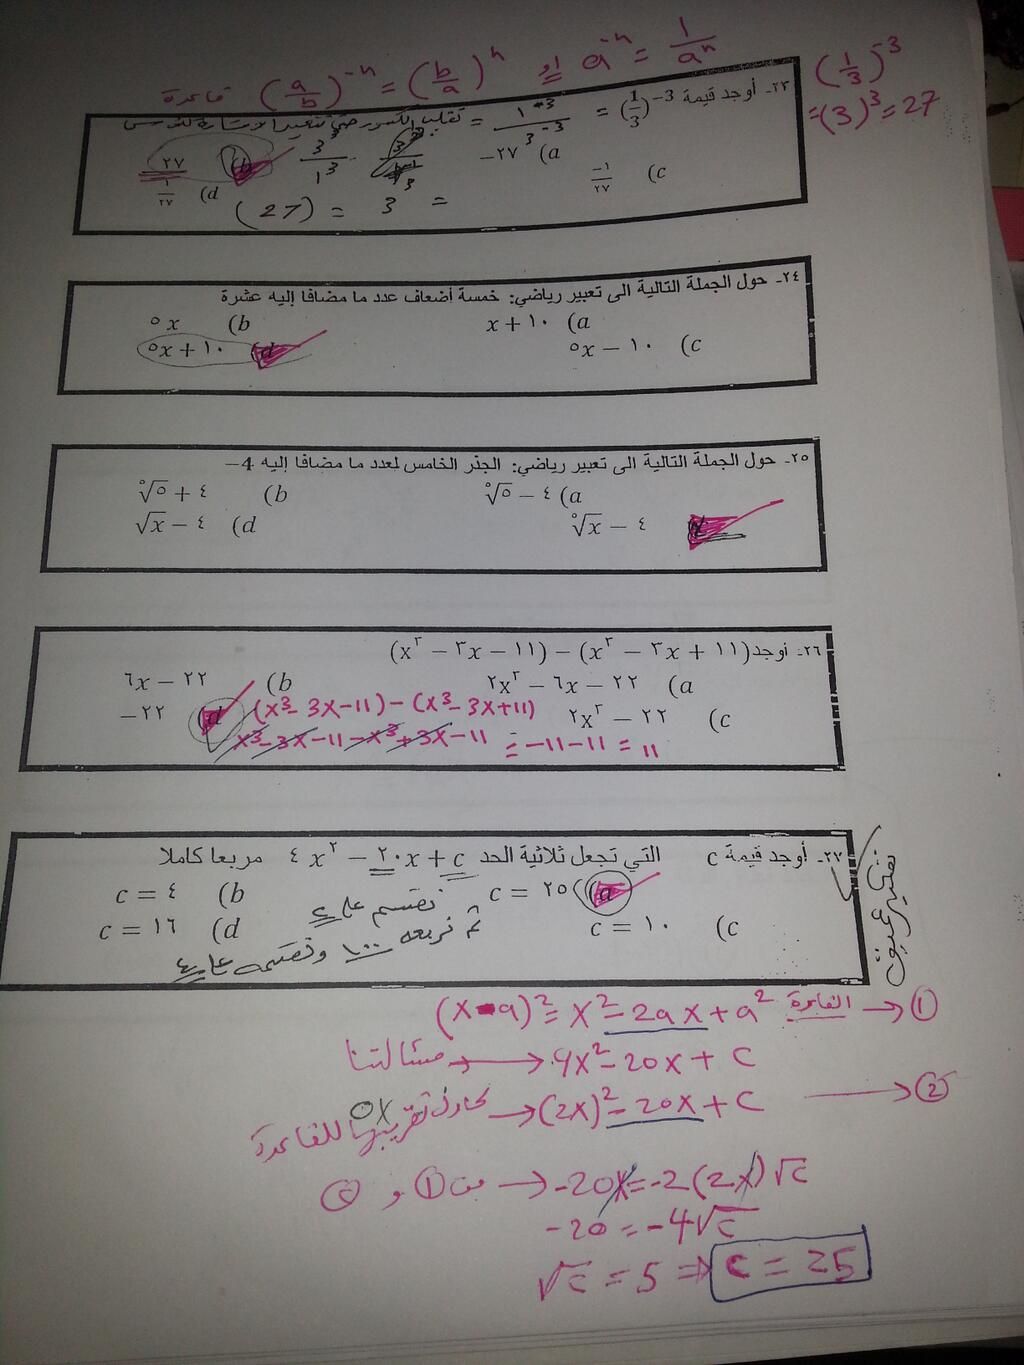 قاعدة (a/b)⁻ⁿ = (b/a)ⁿ او a⁻ⁿ = 1/aⁿ
(1/3)⁻³
=(3)³=27
٢٣- أوجد قيمة (1/3)⁻³ = 1⁻³/3⁻³ =
a) −٢٧
b) ٢٧
3³/1³
c) −١/٢٧
d) ١/٢٧
= 3³ = (27)
٢٤- حول الجملة التالية الى تعبير رياضي: خمسة أضعاف عدد ما مضافا إليه عشرة
a) x + ١٠
b) ٥x
c) ٥x − ١٠
d) ٥x + ١٠
٢٥- حول الجملة التالية الى تعبير رياضي: الجذر الخامس لعدد ما مضافا إليه 4−
a) ⁵√٥ − ٤
b) ⁵√٥ + ٤
⁵√x − ٤
d) √x − ٤
٢٦- أوجد (x³ − ٣x − ١١) − (x³ − ٣x + ١١)
a) ٢x³ − ٦x − ٢٢
b) ٦x − ٢٢
c) ٢x³ − ٢٢
d) −٢٢
(x³- 3x-11) - (x³- 3x+11)
x³-3x-11-x³+3x-11 = -11-11 = 11
٢٧- أوجد قيمة c التي تجعل ثلاثية الحد ٤x² − ٢٠x + c مربعا كاملا
a) c = ٢٥
b) c = ٤
c) c = ١٠
d) c = ١٦
نقسم على ٢
ثم نربعه ١٠٠ ونقسمه على ٤
تفكير عميق
(x-a)² = x²-2ax+a² القاعدة → ①
مثالتنا → 4x²-20x+c
نحاول تقريبها للقاعدة → (2x)²-20x+c → ②
من ① و ② → -20x=-2(2x)√c
-20=-4√c
√c=5 ⇒ c = 25